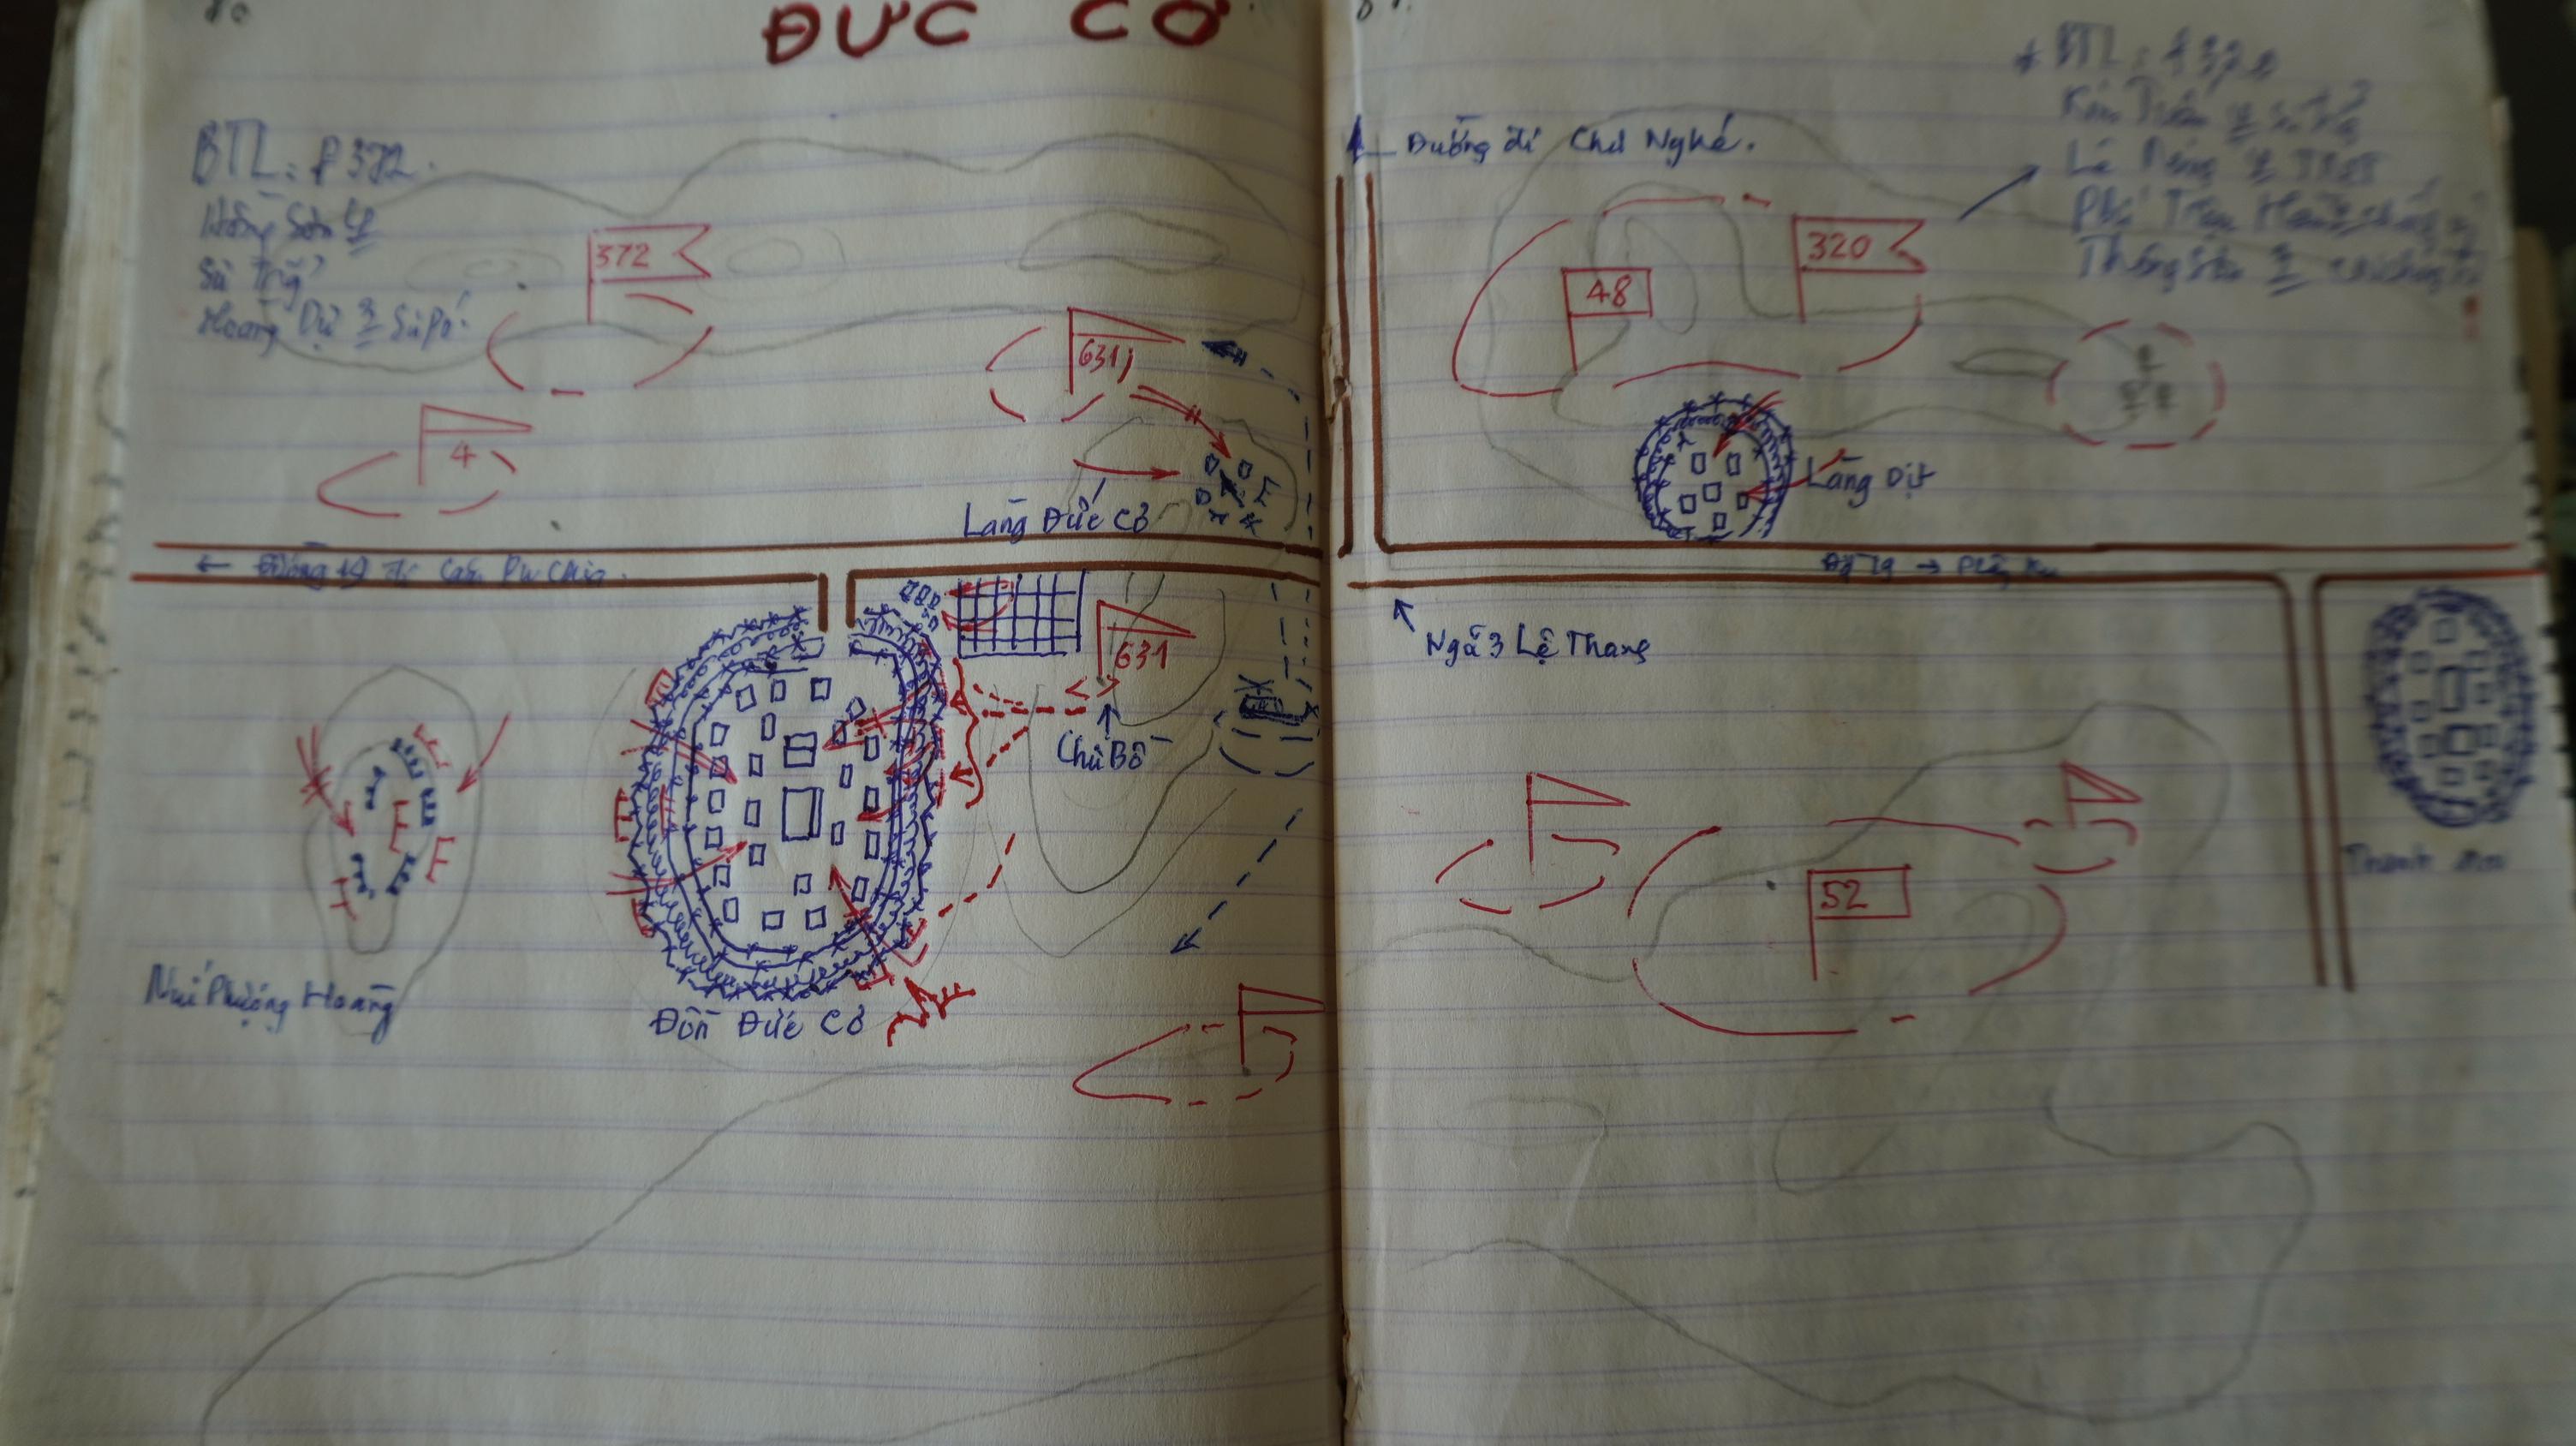 80
ĐỨC CƠ
BTL: f 372.
Hồng Sơn
Sư Trg
Hoàng Dự Sư Pó.
372
4
631
Làng Đức Cơ
← Đường 19 đi Căm Pu Chia.
631
Chư Bồ
Núi Phượng Hoàng
Đồn Đức Cơ
Đường đi Chư Nghé.
* BTL: f 320
Kim Tuấn
Lê
Phí Triệu Hàm
48
320
Làng Dịt
Đg 19 → Plây Ku
Ngã 3 Lệ Thang
52
Thanh